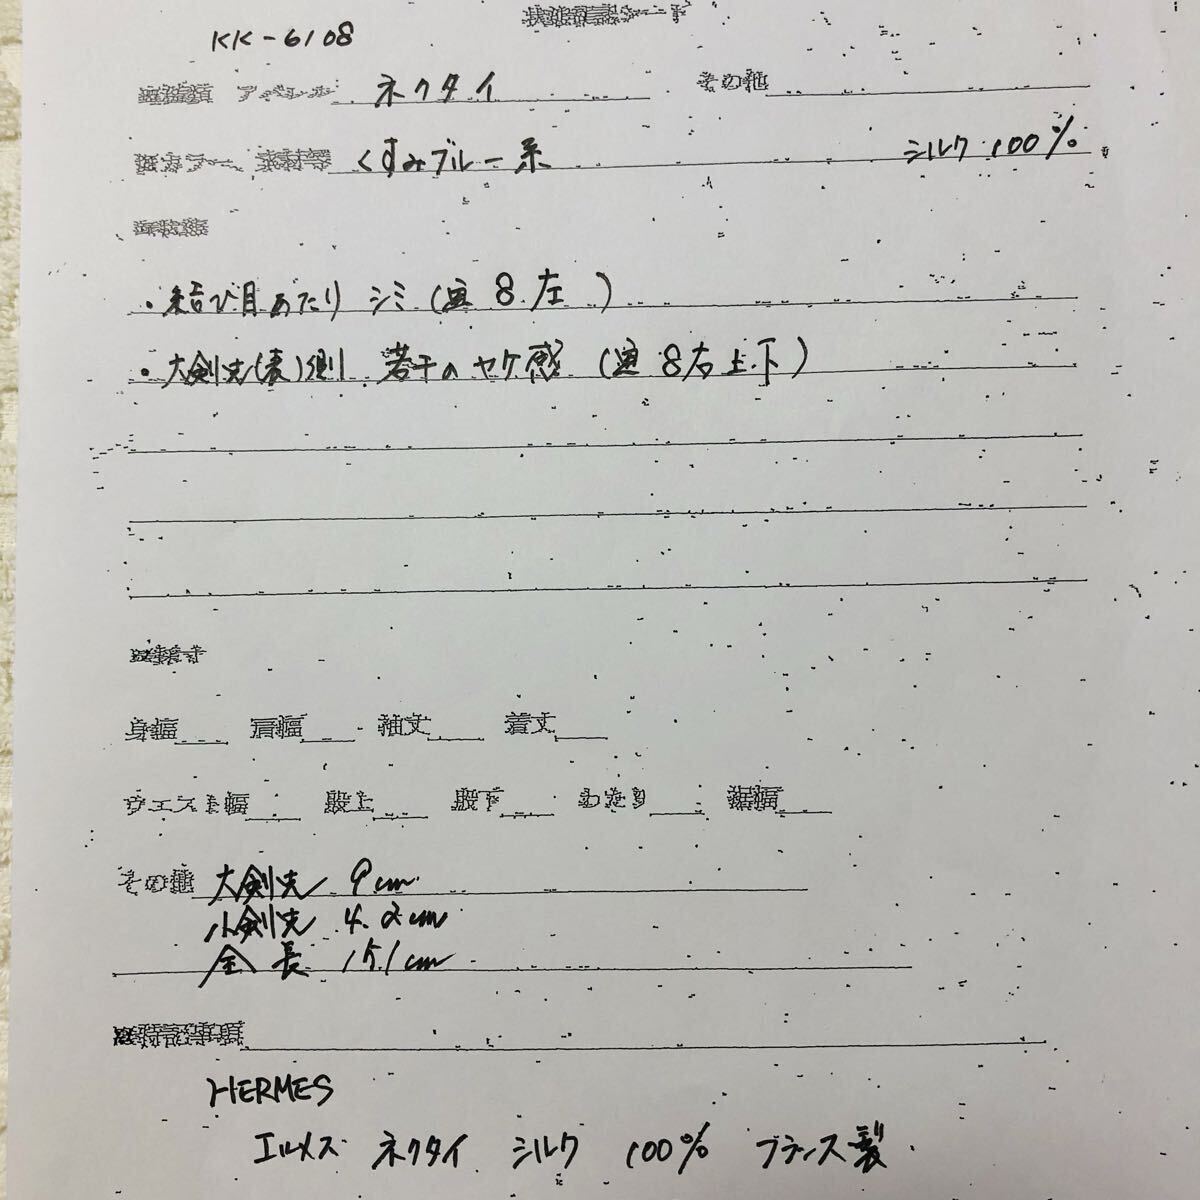 状態確認シート
KK-6108
アパレル ネクタイ その他
カラー 素材等 くすみブルー系 シルク 100%
・結び目あたり シミ (画 8 左 )
・大剣先(表)側 若干のヤケ感 (画 8右上.下)
身幅 肩幅 袖丈 着丈
ウエスト幅 股上 股下 わたり 裾幅
その他 大剣先 9cm
小剣先 4.2cm
全長 151cm
特記事項
HERMES
エルメス ネクタイ シルク 100% フランス製